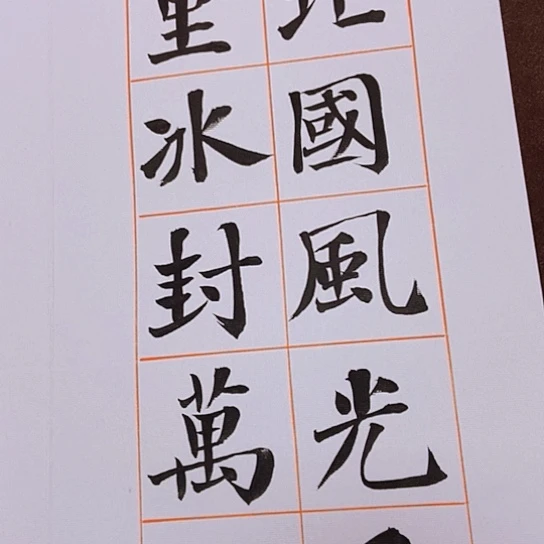 北國風光
里冰封萬